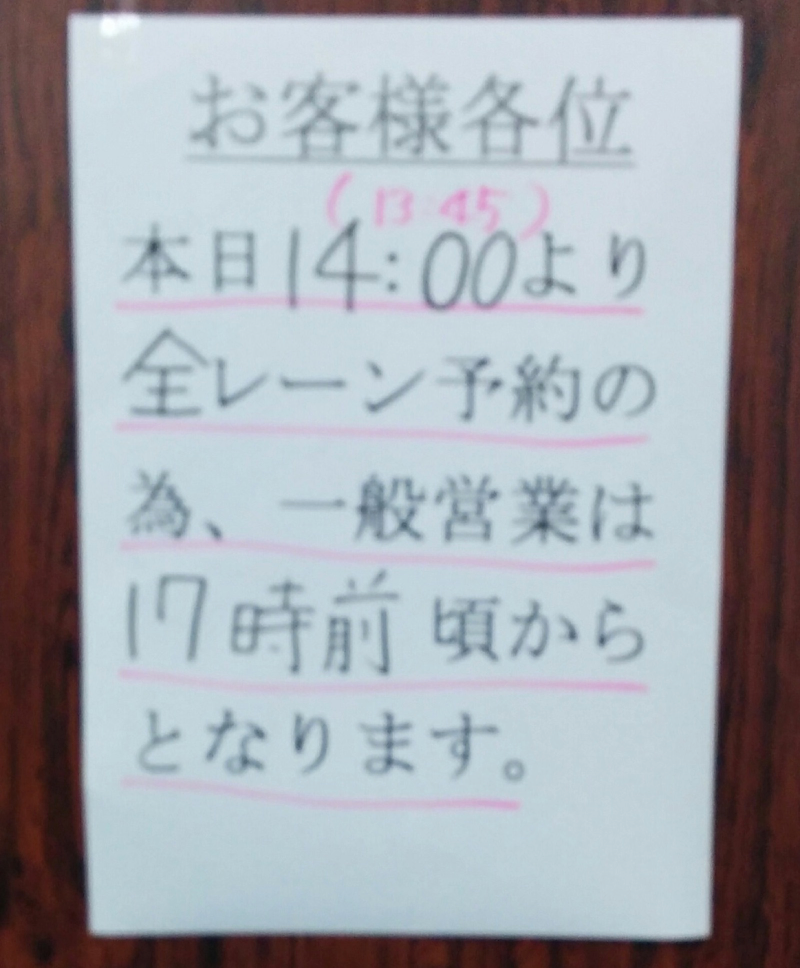 お客様各位
(13:45)
本日14:00より
全レーン予約の
為、一般営業は
17時前頃から
となります。